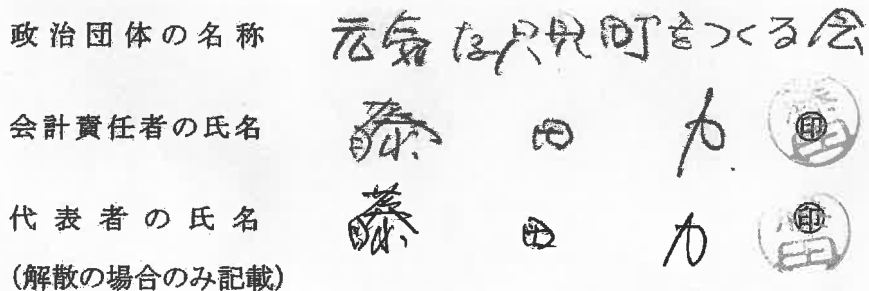 政治団体の名称 元気な只見町をつくる会
会計責任者の氏名 藤田力 ㊞
代表者の氏名 藤田力 ㊞
(解散の場合のみ記載)